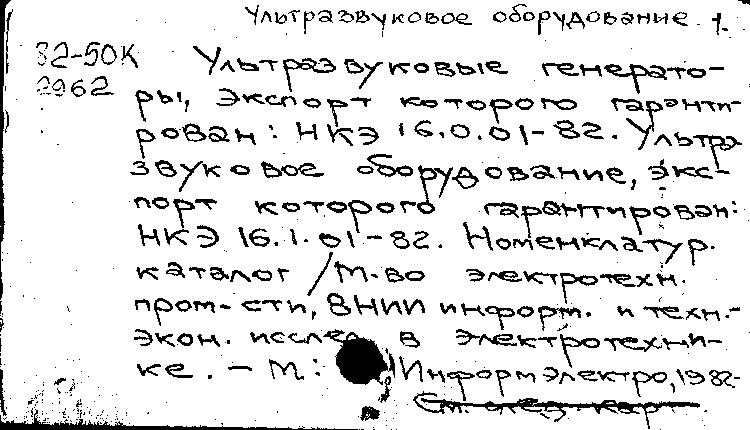 Ультразвуковое оборудование. 1.
82-50К Ультразвуковые генерато-
2962 ры, экспорт которого гаранти-
рован: НКЭ 16.0.01-82. Ультра
звуковое оборудование, экс-
порт которого гарантирован:
НКЭ 16.1.01-82. Номенклатур.
каталог /М-во электротехн.
пром-сти, ВНИИ информ. и техн.-
экон. исслед. в электротехни-
ке. - М.: Информэлектро, 1982-
См. след. карт.